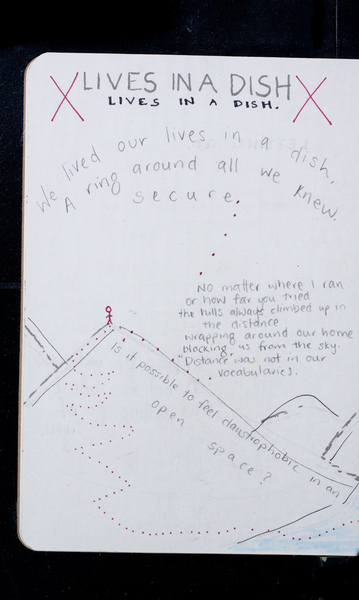 LIVES IN A DISH
LIVES IN A DISH.
We lived our lives in a dish.
A ring around all we knew.
secure.
No matter where I ran
or how far you tried
the hills always climbed up in
the distance
wrapping around our home
blocking us from the sky.
"Distance was not in our
vocabularies.
Is it possible to feel claustrophobic in an
open space?